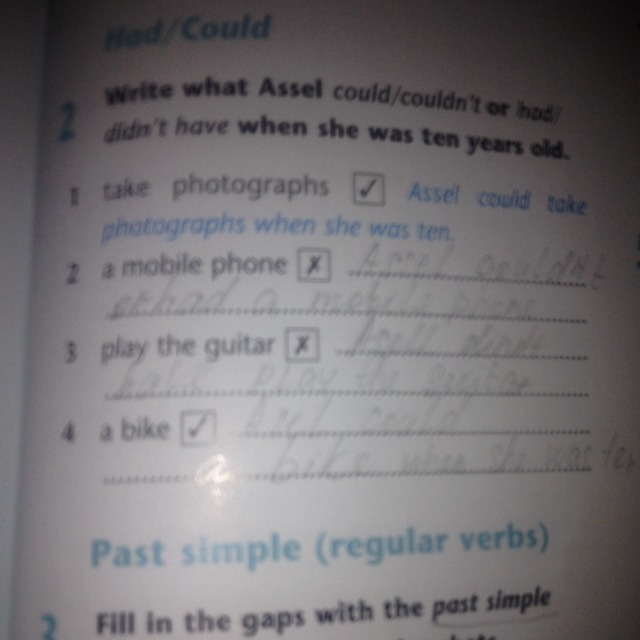 Had/Could
2 Write what Assel could/couldn't or had/
didn't have when she was ten years old.
1 take photographs ✓ Assel could take
photographs when she was ten.
2 a mobile phone ✗ Assel couldn't
had a mobile phone
3 play the guitar ✗
play the guitar
4 a bike ✓ could
a bike when she was ten
Past simple (regular verbs)
3 Fill in the gaps with the past simple